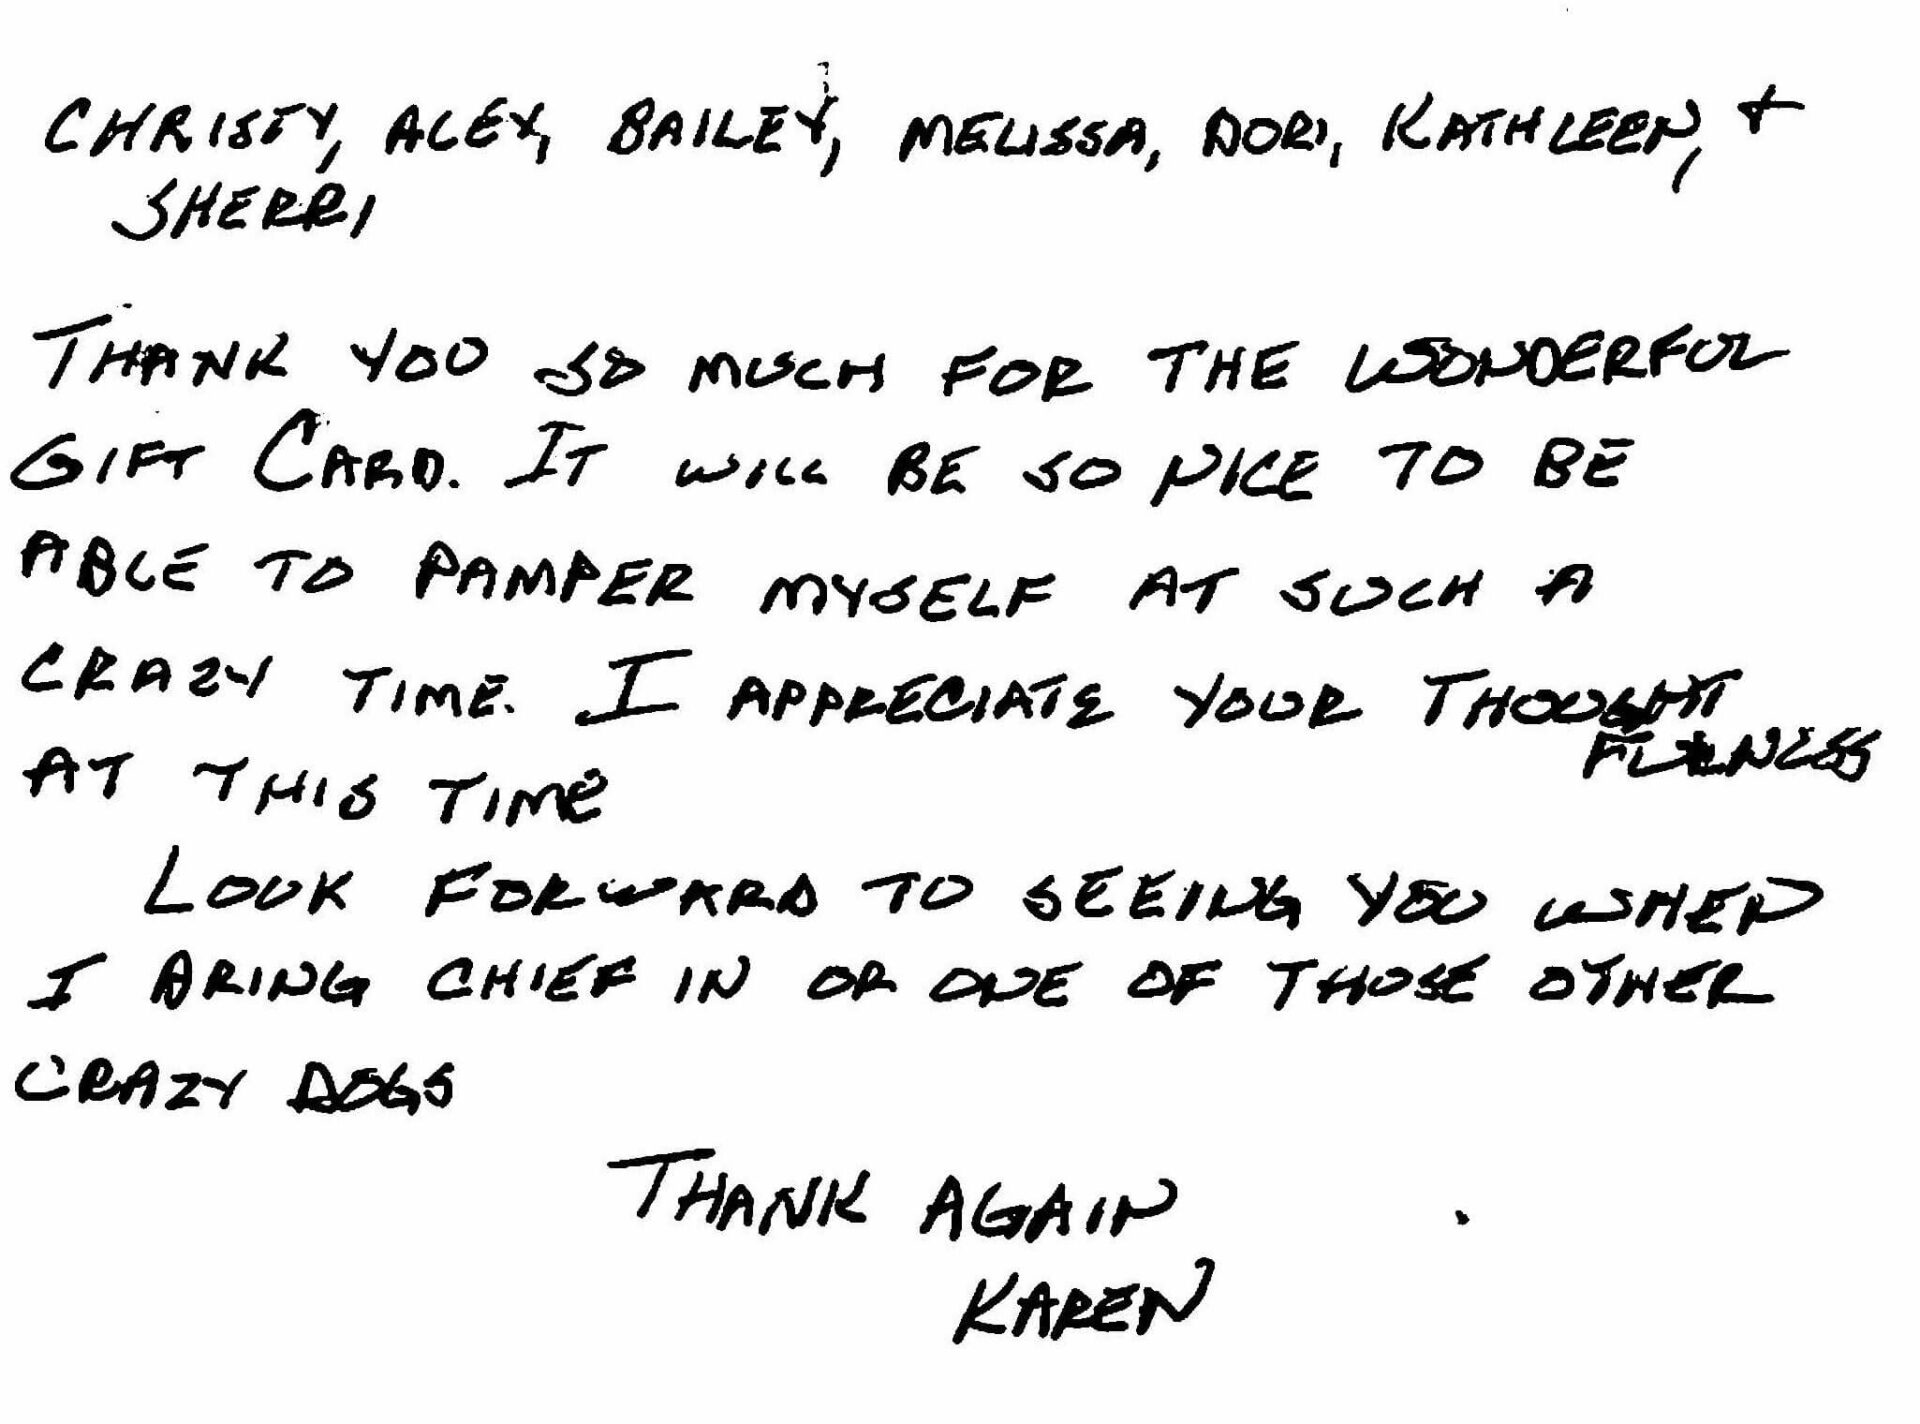 CHRISTY, ALEX, BAILEY, MELISSA, DORI, KATHLEEN, +
SHERRI
THANK YOU SO MUCH FOR THE WONDERFUL
GIFT CARD. IT WILL BE SO NICE TO BE
ABLE TO PAMPER MYSELF AT SUCH A
CRAZY TIME. I APPRECIATE YOUR THOUGHT
FULNESS
AT THIS TIME
LOOK FORWARD TO SEEING YOU WHEN
I BRING CHIEF IN OR ONE OF THOSE OTHER
CRAZY DOGS
THANK AGAIN
KAREN